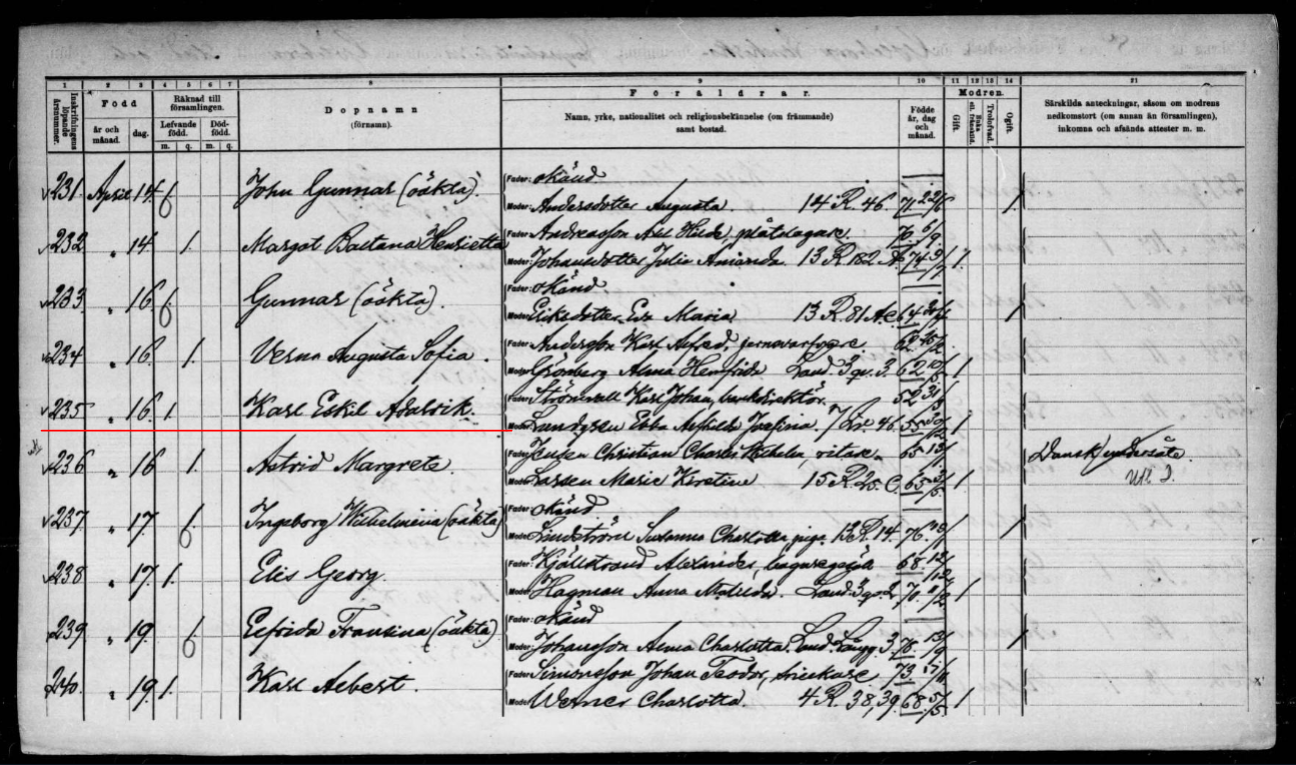 1 2 3 4 5 6 7 8 9 10 11 12 13 14 21
Inskrifningens löpande årsnummer.
Född
år och månad.
dag.
Räknad till församlingen.
Lefvande född.
Död-född.
m. q. m. q.
Dopnamn
(förnamn).
Föräldrar.
Namn, yrke, nationalitet och religionsbekännelse (om främmande)
samt bostad.
Födde år, dag och månad.
Modren.
Gift.
Trolofvad.
Ogift.
Särskilda anteckningar, såsom om modrens
nedkomstort (om annan än församlingen),
inkomna och afsända attester m. m.
231 April 14 John Gunnar (oäkta). Fader: okänd
Moder: Andersdotter Augusta. 14 R. 46 71 22/6 1
232 " 14 1 Margot Henrietta Fader: Andreasson Axel, plåtslagare 76 6/9
Moder: Johansdotter Julia Amanda 13 R 182 A 74 1
233 " 16 Gunnar (oäkta). Fader: okänd
Moder: Eriksdotter Eva Maria 13 R 81 64 1
234 " 16 1 Verna Augusta Sofia. Fader: Andersson Karl Alfred, 62
Moder: Grönberg Alma Land. 3 qv. 3. 62 1
235 " 16 1 Karl Eskil Fader: Karl Johan, 52
Moder: Lundgren Ebba Josefina 46 55 1
236 " 16 1 Astrid Margrete Fader: Jensen Christian Charles Vilhelm, ritare 65 Dansk undersåte.
Moder: Larsen Marie Kirstine 15 R 25 C. 65 1
237 " 17 Ingeborg Wilhelmina (oäkta) Fader: okänd
Moder: Lindström Susanna Charlotta piga 13 R. 14. 76 1
238 " 17 1 Elis Georg. Fader: Kjällstrand Alexander, 68
Moder: Hagman Anna Matilda. Land. 3 qv. 2 70 1
239 " 19 Elfrida Fransina (oäkta) Fader: okänd
Moder: Johansson Alma Charlotta. 3 78 1
240 " 19 1 Karl Albert. Fader: Simonsson Johan Teodor, 73
Moder: Werner Charlotta. 4 R. 38,39. 68 5/5 1